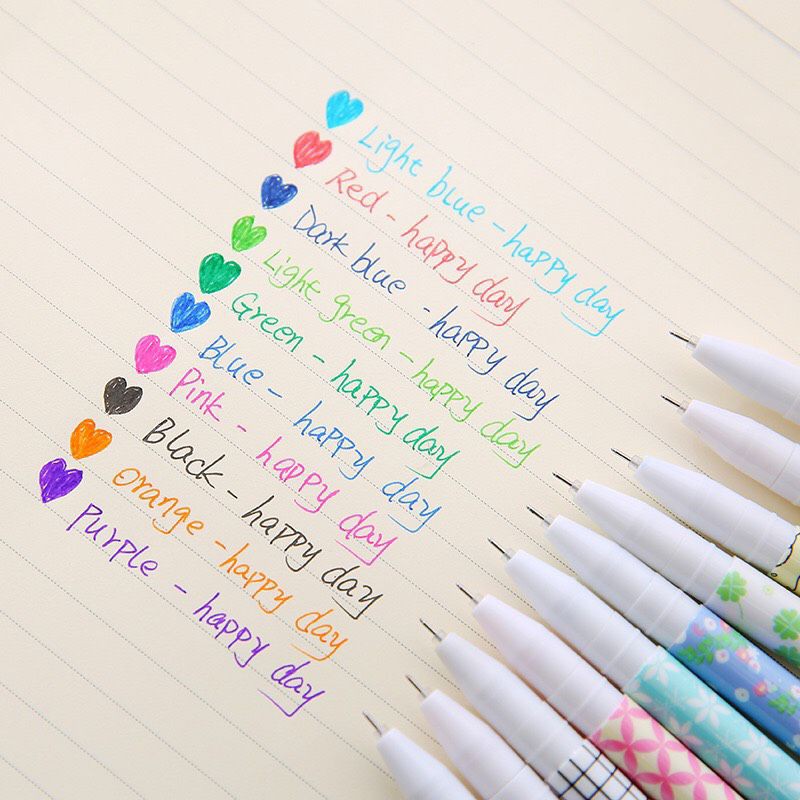 Light blue - happy day
Red - happy day
Dark blue - happy day
Light green - happy day
Green - happy day
Blue - happy day
Pink - happy day
Black - happy day
orange - happy day
Purple - happy day